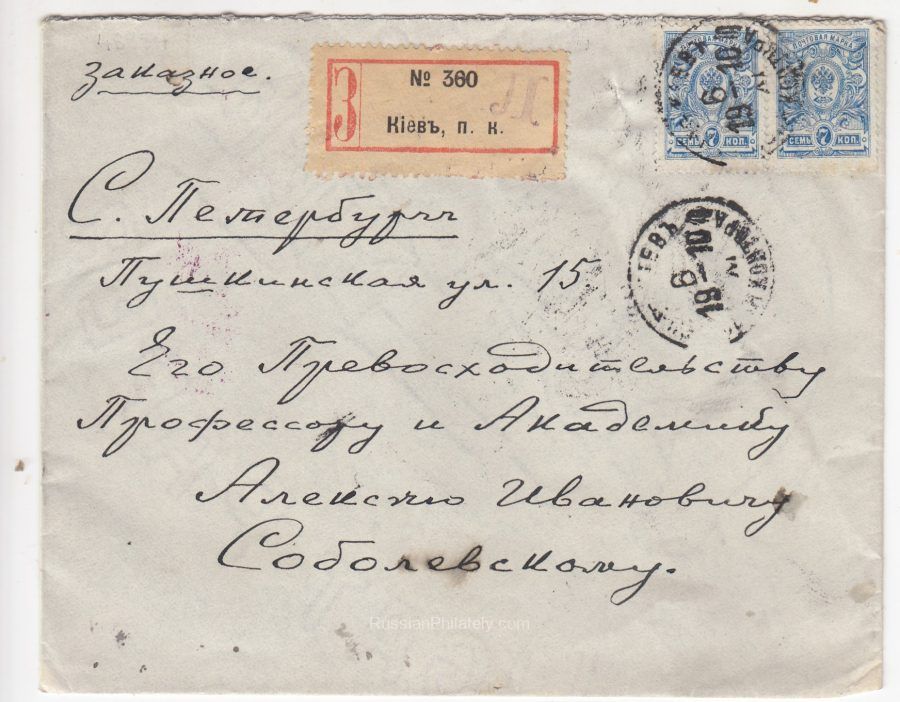 заказное.
З
№ 360
Кіевъ, п. к.
ПОЧТОВАЯ МАРКА
СЕМЬ 7 КОП.
СЕМЬ 7 КОП.
19-6 10
С. Петербургъ
19-6 10
Пушкинская ул. 15
Его Превосходительству
Профессору и Академику
Алексѣю Ивановичу
Соболевскому.
RussianPhilately.com